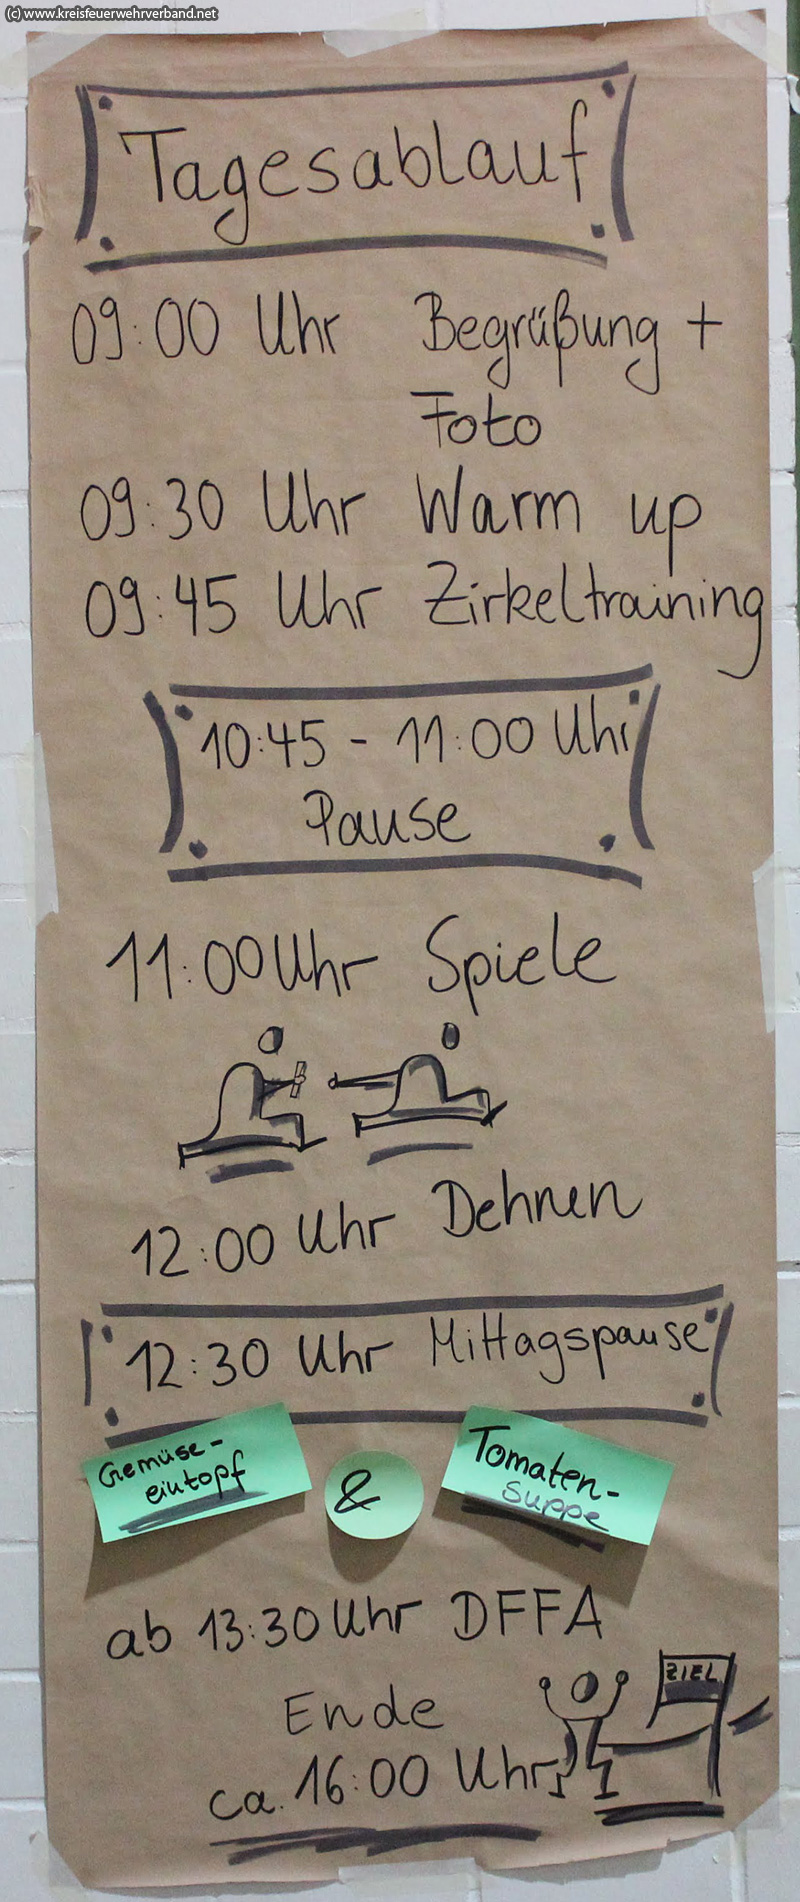 (c) www.kreisfeuerwehrverband.net
Tagesablauf
09:00 Uhr Begrüßung +
Foto
09:30 Uhr Warm up
09:45 Uhr Zirkeltraining
10:45 - 11:00 Uhr
Pause
11:00 Uhr Spiele
12:00 Uhr Dehnen
12:30 Uhr Mittagspause
Gemüse-
eintopf
&
Tomaten-
suppe
ab 13:30 Uhr DFFA
ZIEL
Ende
ca. 16:00 Uhr